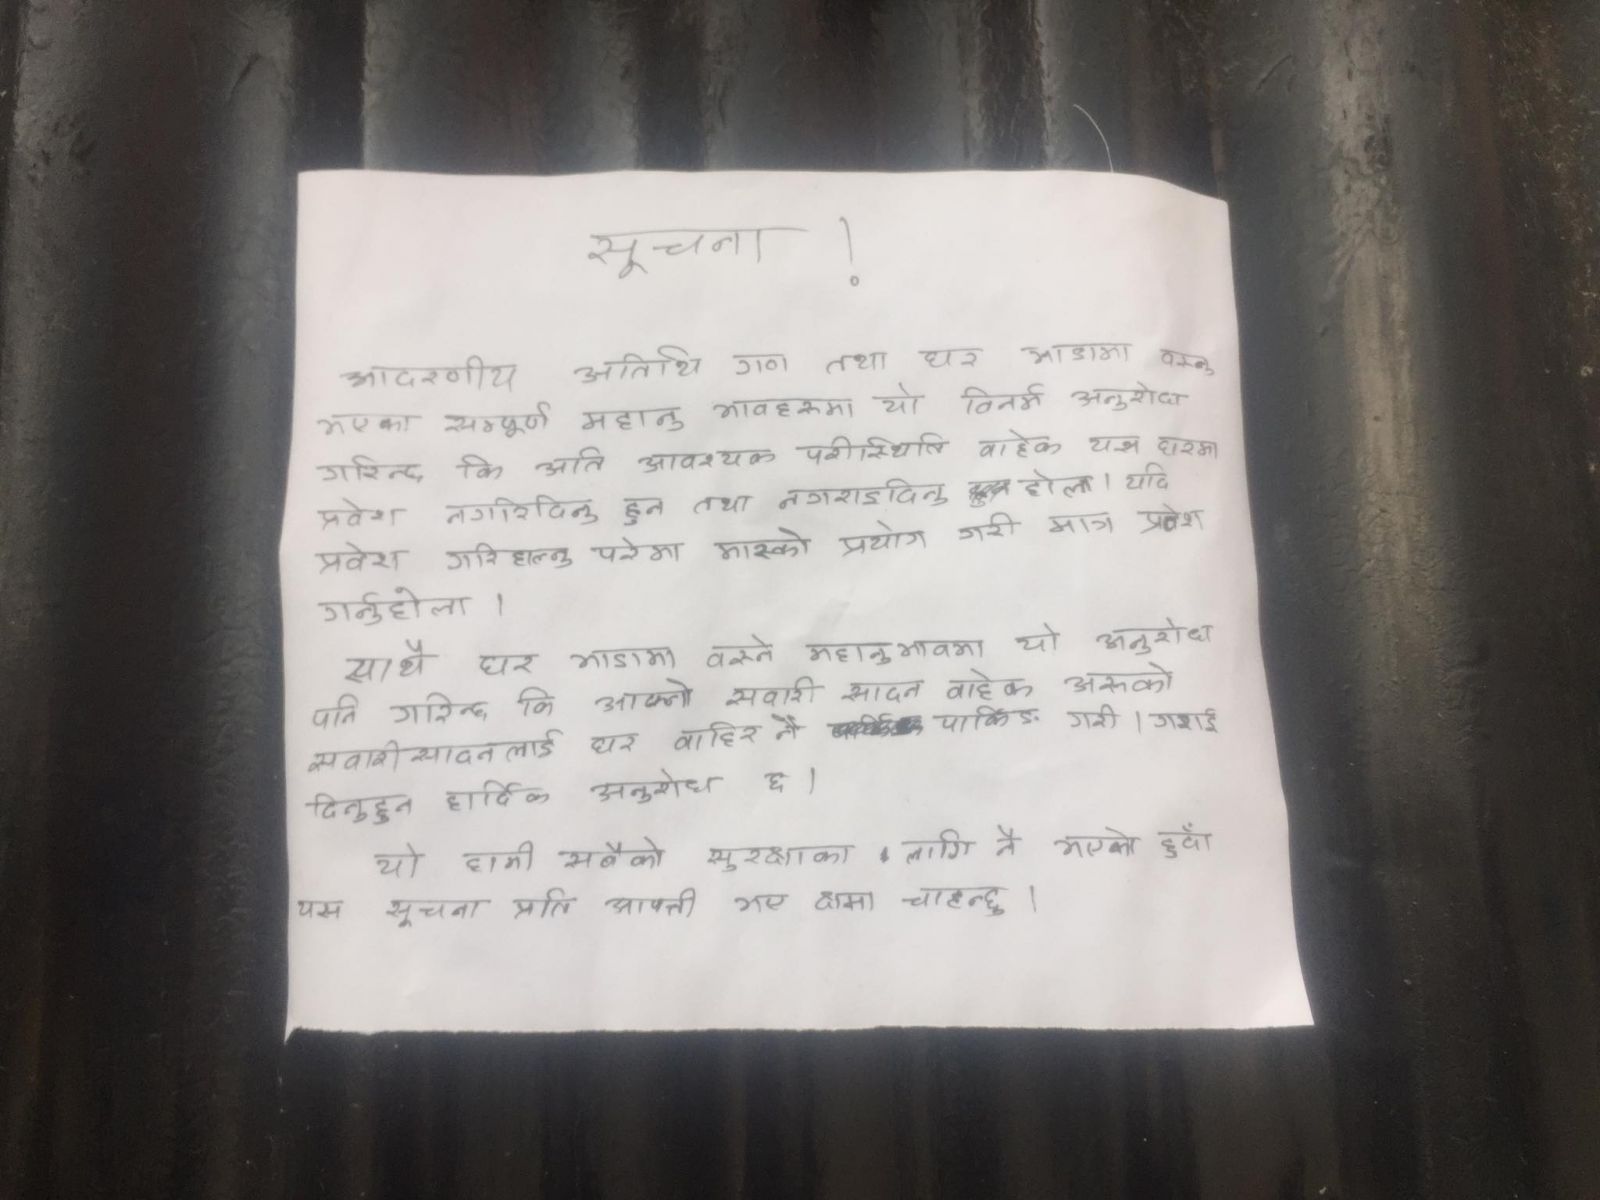 सूचना !
आदरणीय अतिथि गण तथा घर भाडामा वस्नु
भएका सम्पूर्ण महानु भावहरूमा यो विनर्म अनुरोध
गरिन्छ कि अति आवश्यक परीस्थिति वाहेक यस घरमा
प्रवेश नगरिदिनु हुन तथा नगराइदिनु होला। यदि
प्रवेश गरिहाल्नु परेमा मास्को प्रयोग गरी मात्र प्रवेश
गर्नुहोला ।
साथै घर भाडामा वस्ने महानुभावमा यो अनुरोध
पनि गरिन्छ कि आफ्नो सवारी सादन वाहेक अरुको
सवारी सादनलाई घर वाहिर नै पार्किङ गरी । गराई
दिनुहुन हार्दिक अनुरोध छ ।
यो हामी सबैको सुरक्षाका लागि नै भएको हुदाँ
यस सूचना प्रति आपत्ती भए क्षमा चाहन्छु ।